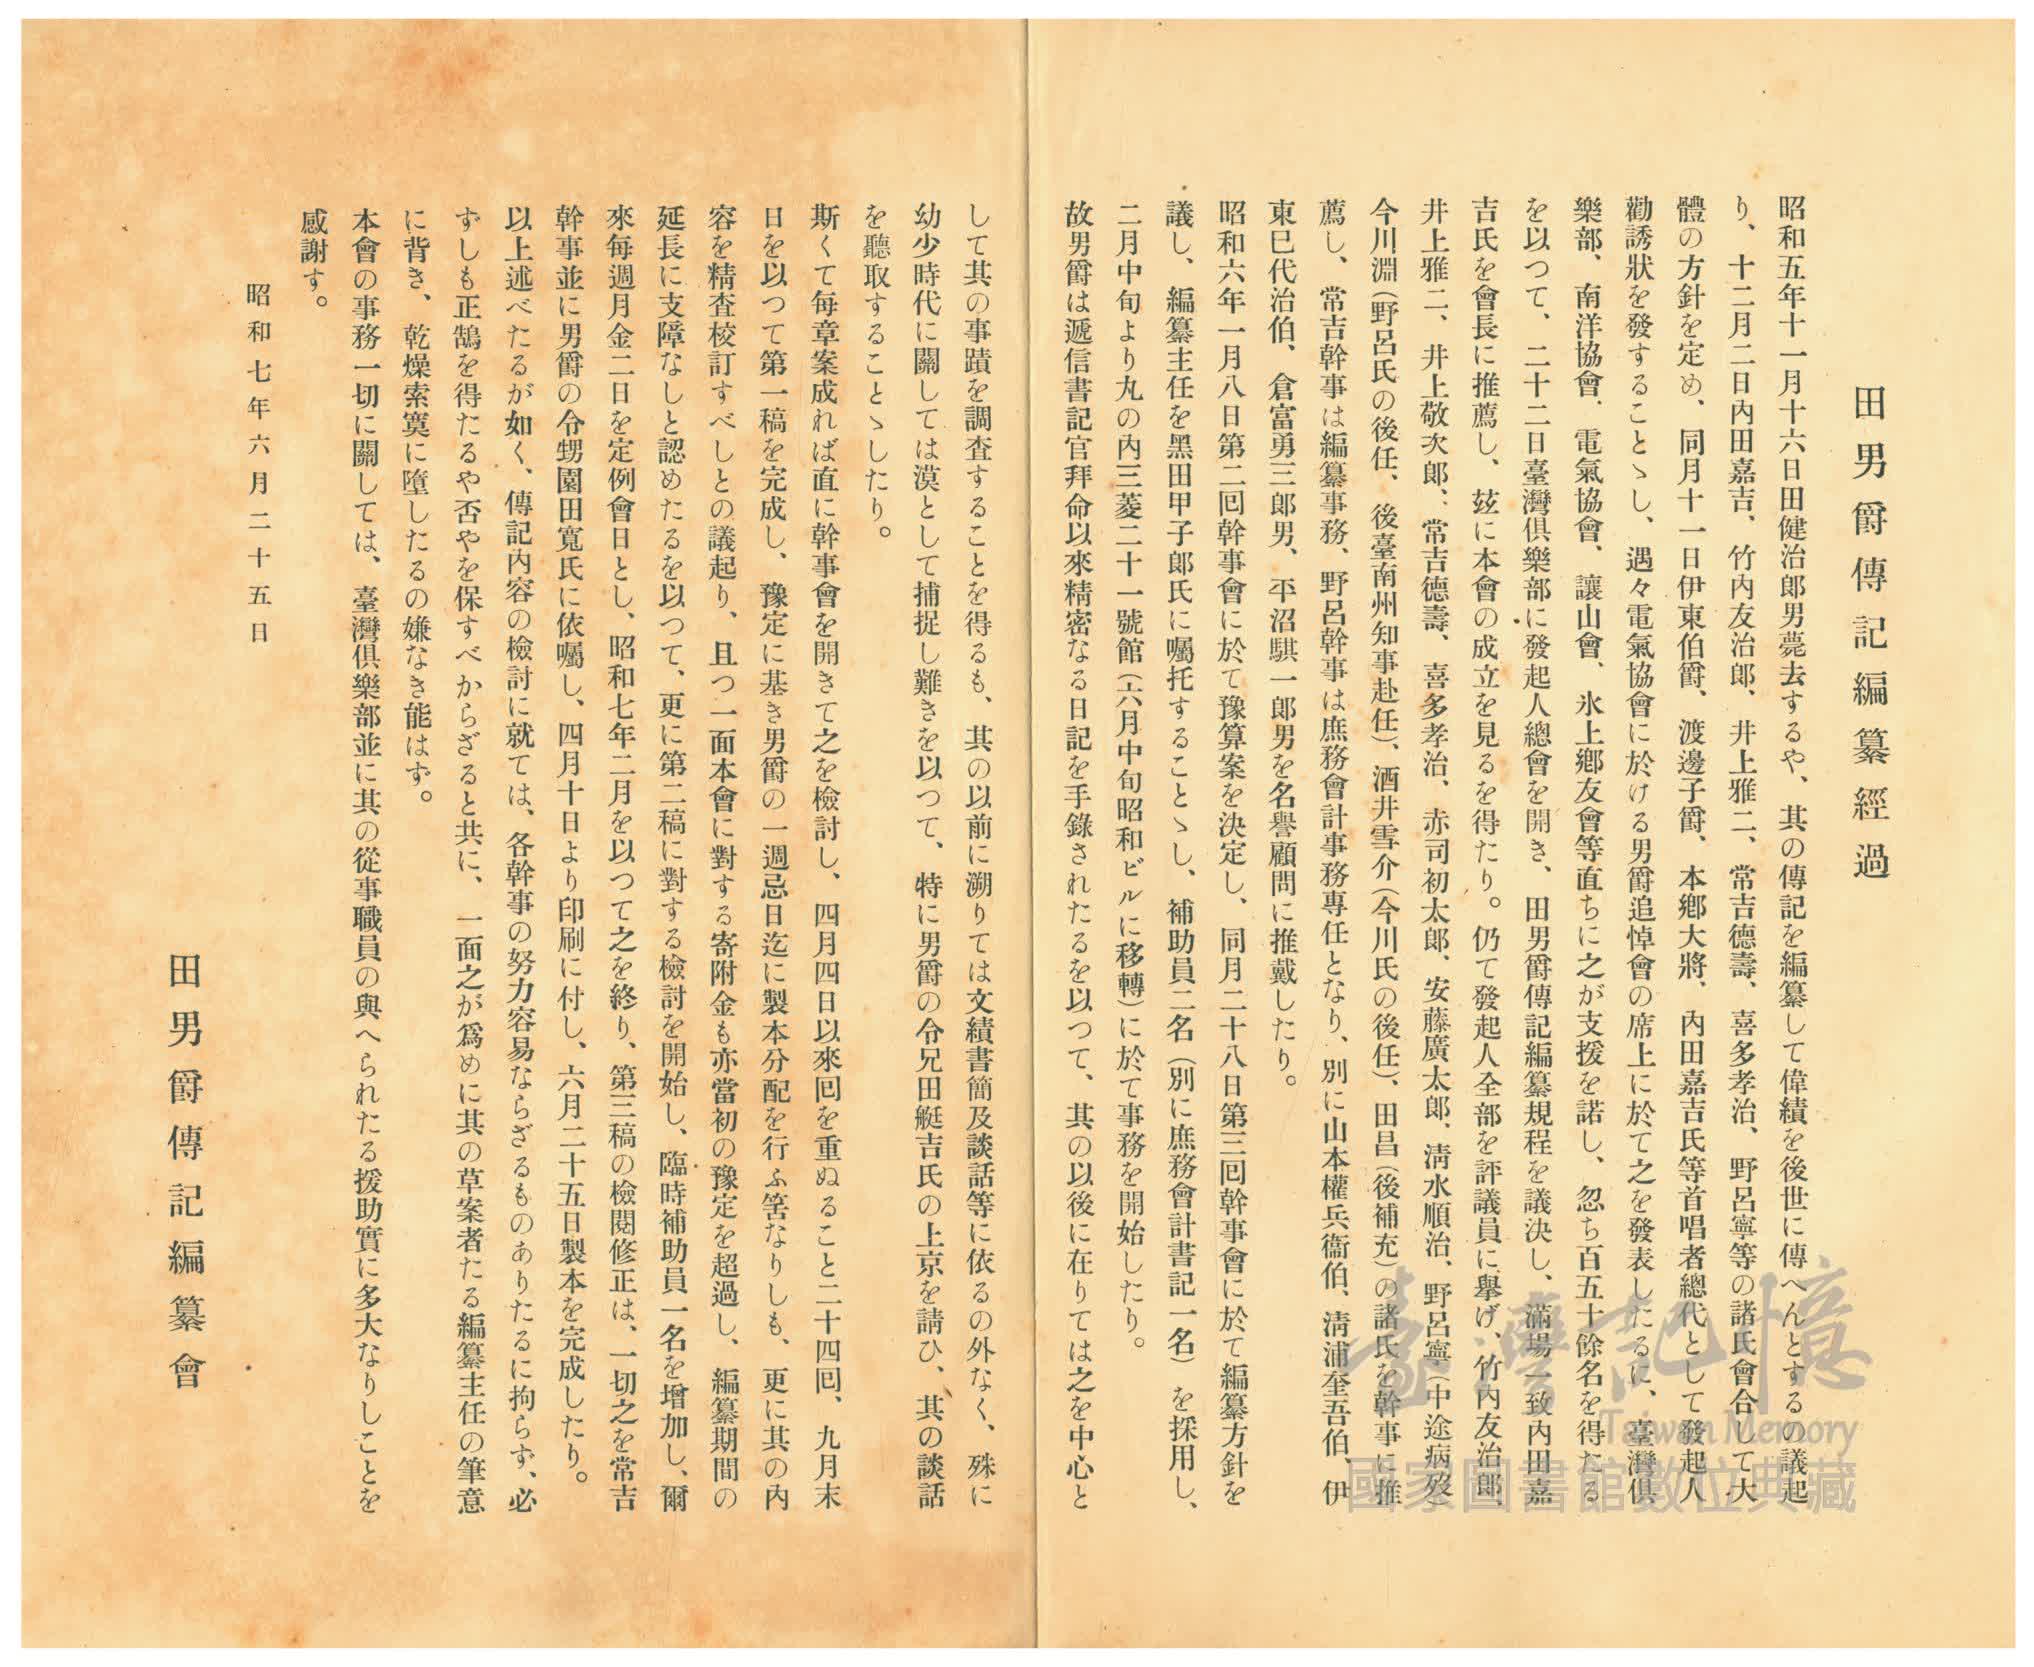 田男爵傳記編纂經過
昭和五年十一月十六日田健治郎男薨去するや、其の傳記を編纂して偉績を後世に傳へんとするの議起
り、十二月二日內田嘉吉、竹內友治郎、井上雅二、常吉德壽、喜多孝治、野呂寧等の諸氏會合して大
體の方針を定め、同月十一日伊東伯爵、渡邊子爵、本鄕大將、內田嘉吉氏等首唱者總代として發起人
勸誘狀を發することゝし、遇々電氣協會に於ける男爵追悼會の席上に於て之を發表したるに、臺灣俱
樂部、南洋協會、電氣協會、讓山會、氷上鄕友會等直ちに之が支援を諾し、忽ち百五十餘名を得たる
を以つて、二十二日臺灣俱樂部に發起人總會を開き、田男爵傳記編纂規程を議決し、滿場一致內田嘉
吉氏を會長に推薦し、玆に本會の成立を見るを得たり。仍て發起人全部を評議員に擧げ、竹內友治郎、
井上雅二、井上敬次郎、常吉德壽、喜多孝治、赤司初太郎、安藤廣太郎、淸水順治、野呂寧(中途病歿)
今川淵(野呂氏の後任、後臺南州知事赴任)、酒井雪介(今川氏の後任)、田昌(後補充)の諸氏を幹事に推
薦し、常吉幹事は編纂事務、野呂幹事は庶務會計事務專任となり、別に山本權兵衞伯、淸浦奎吾伯、伊
東巳代治伯、倉富勇三郎男、平沼騏一郎男を名譽顧問に推戴したり。
昭和六年一月八日第二囘幹事會に於て豫算案を決定し、同月二十八日第三囘幹事會に於て編纂方針を
議し、編纂主任を黑田甲子郎氏に囑托することゝし、補助員二名(別に庶務會計書記一名)を採用し、
二月中旬より丸の內三菱二十一號館(六月中旬昭和ビルに移轉)に於て事務を開始したり。
故男爵は遞信書記官拜命以來精密なる日記を手錄されたるを以つて、其の以後に在りては之を中心と
して其の事蹟を調査することを得るも、其の以前に溯りては文績書簡及談話等に依るの外なく、殊に
幼少時代に關しては漠として捕捉し難きを以つて、特に男爵の令兄田艇吉氏の上京を請ひ、其の談話
を聽取することゝしたり。
斯くて每章案成れば直に幹事會を開きて之を檢討し、四月四日以來囘を重ぬること二十四囘、九月末
日を以つて第一稿を完成し、豫定に基き男爵の一週忌日迄に製本分配を行ふ筈なりしも、更に其の內
容を精査校訂すべしとの議起り、且つ一面本會に對する寄附金も亦當初の豫定を超過し、編纂期間の
延長に支障なしと認めたるを以つて、更に第二稿に對する檢討を開始し、臨時補助員一名を增加し、爾
來每週月金二日を定例會日とし、昭和七年二月を以つて之を終り、第三稿の檢閱修正は、一切之を常吉
幹事並に男爵の令甥園田寬氏に依囑し、四月十日より印刷に付し、六月二十五日製本を完成したり。
以上述べたるが如く、傳記內容の檢討に就ては、各幹事の努力容易ならざるものありたるに拘らず、必
ずしも正鵠を得たるや否やを保すべからざると共に、一面之が爲めに其の草案者たる編纂主任の筆意
に背き、乾燥索寞に墮したるの嫌なき能はず。
本會の事務一切に關しては、臺灣俱樂部並に其の從事職員の與へられたる援助實に多大なりしことを
感謝す。
昭和七年六月二十五日
田男爵傳記編纂會
臺灣記憶
Taiwan Memory
國家圖書館數位典藏